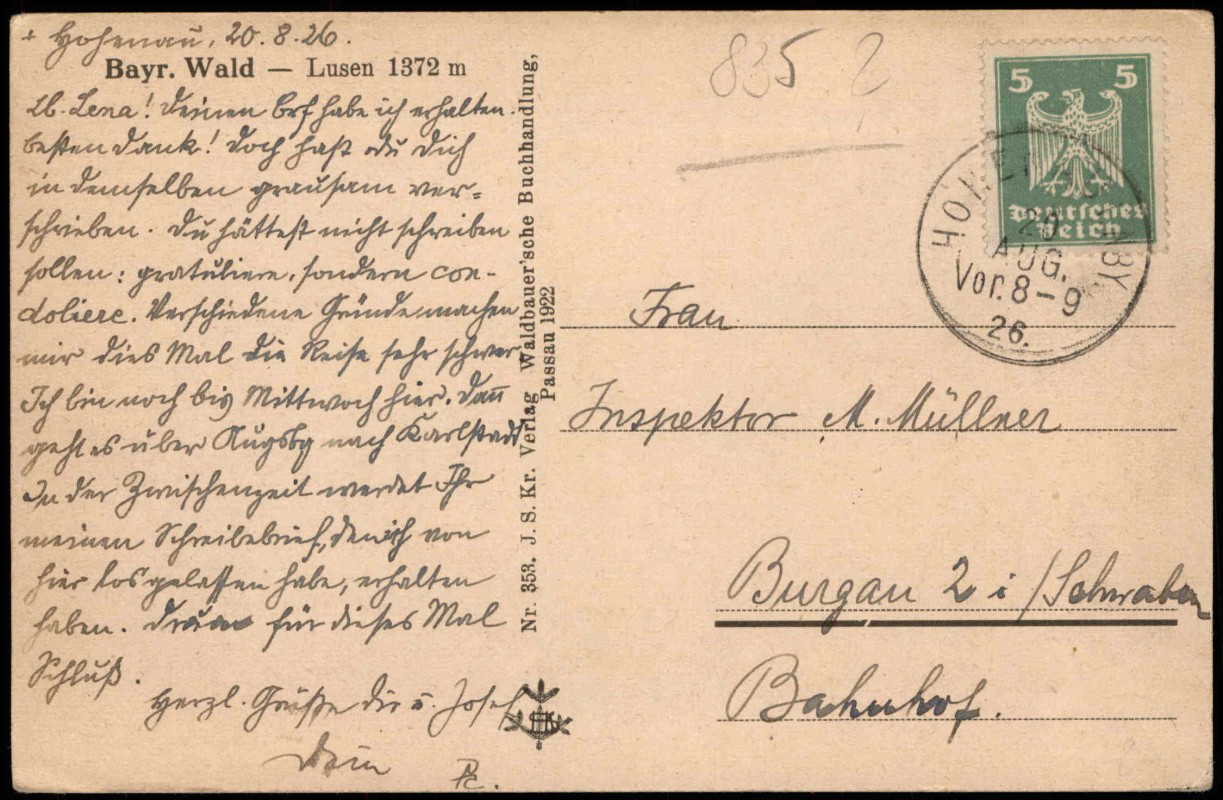 + Hohenau, 20.8.26.
Bayr. Wald — Lusen 1372 m
Lb. Lena! Deinen Brf habe ich erhalten.
besten Dank! Doch hast du Dich
in demselben grausam ver-
schrieben. Du hättest nicht schreiben
sollen: gratuliere, sondern con-
doliere. Verschiedene Gründe machen
mir dies Mal die Reise sehr schwer
Ich bin noch bis Mittwoch hier. Dann
geht es über Augsbg nach Karlstadt
In der Zwischenzeit werdet Ihr
meinen Schreibebrief, den ich von
hier losgelassen habe, erhalten
haben. Drum für dieses Mal
Schluß.
Herzl. Grüße dir u. Josef
Dein
Nr. 353. J. S. Kr. Verlag Waldbauer'sche Buchhandlung,
Passau 1922
835 2
5 5
Deutsches
Reich
20
AUG.
Vor. 8-9
26.
Frau
Inspektor M. Müllner
Burgau 2 i/Schwaben
Bahnhof.